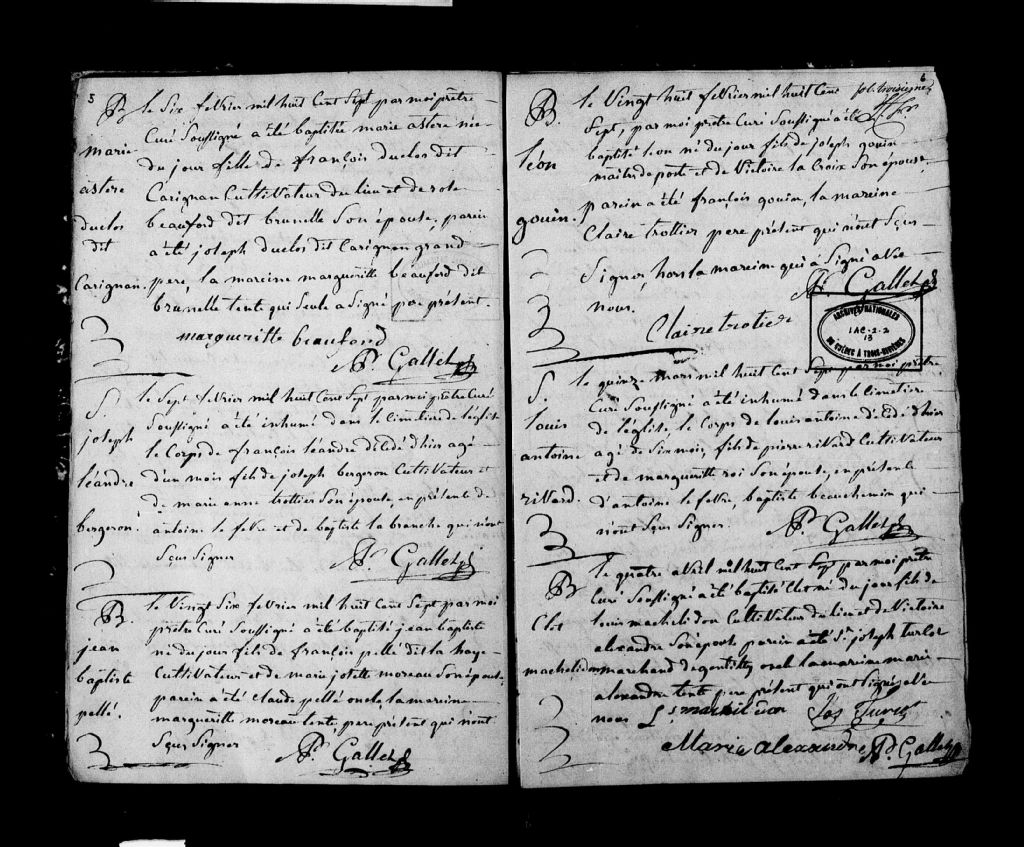 5
B le Six fevrier mil huit Cent Sept par moi prêtre
Curé Soussigné a été baptisée marie astere née
marie du jour fille de françois duclos dit
astere Carignan Cultivateur du lieu et de
duclos beauford dit brunelle Son épouse, parein
dit a été joseph duclos dit Carignan grand
Carignan. pere, la mareine marguerille beauford dit
brunelle tente qui Seule a Signé pere présent.
marguerille beauford
Pr. Gallet
S. le Sept fevrier mil huit Cent Sept par moi prêtre Curé
Soussigné a été inhumé dans le Cimetiere de l'église
joseph le Corps de françois léandre décédé d'hier agé
léandre d'un mois fils de joseph bergeron Cultivateur et
de marie anne trottier Son épouse, en présence de
bergeron. antoine le febre et de baptiste la branche qui n'ont
Sçus Signer
Pr. Gallet
B. le Vingt Six fevrier mil huit Cent Sept par moi
prêtre Curé Soussigné a été baptisé jean baptiste
jean né du jour fils de françois pellé dit la haye
baptiste Cultivateur et de marie josette moreau Son épouse
parein a été Claude pellé oncle la mareine
pellé. marguerille moreau tente, pere présent qui n'ont
Sçus Signer
Pr. Gallet
6
B. le Vingt huit fevrier mil huit Cent
Sept, par moi prêtre Curé Soussigné a été
léon baptisé léon né du jour fils de joseph gouin
maitre de poste et de Victoire la Croix Son épouse,
gouin. parein a été françois gouin, la mareine
Claire trollier pere présent qui n'ont Sçus
Signer, hors la mareine qui a Signé avec
nous.
Pr. Gallet
Claire trotier
ARCHIVES NATIONALES
1 AC-2-2
13
DU QUÉBEC À TROIS-RIVIÈRES
S. le quinze mars mil huit Cent Sept par moi prêtre
Curé Soussigné a été inhumé dans le Cimetiere
louis de l'église, le Corps de louis antoine décédé d'hier
antoine agé de Six mois, fils de pierre rivard Cultivateur
et de marguerille roi Son épouse, en présence
rivard. d'antoine le febre, baptiste beauchemin qui
n'ont Sçus Signer.
Pr. Gallet
B le quatre avril mil huit Cent Sept par moi prêtre
Curé Soussigné a été baptisé né du jour fils de
louis Cultivateur du lieu et de Victoire
alexandre Son épouse parein a été Sr. joseph
marchand de gentilly oncle la mareine marie
alexandre tente pere présent qui ont Signé avec
nous
Marie alexandre
Pr. Gallet